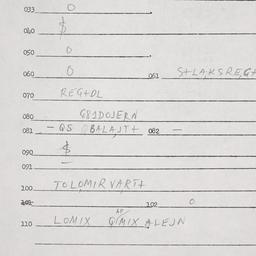 033 0
040 $
050 0
060 0 061 S+LA,KSREG+
070 REG+DL
080 G81DOJERN
081 - QS BALAJT+ 082 -
090 $
091 -
100 TOLOMIR VART+
101 102 0
110 LOMIX G/MIX ALEJN